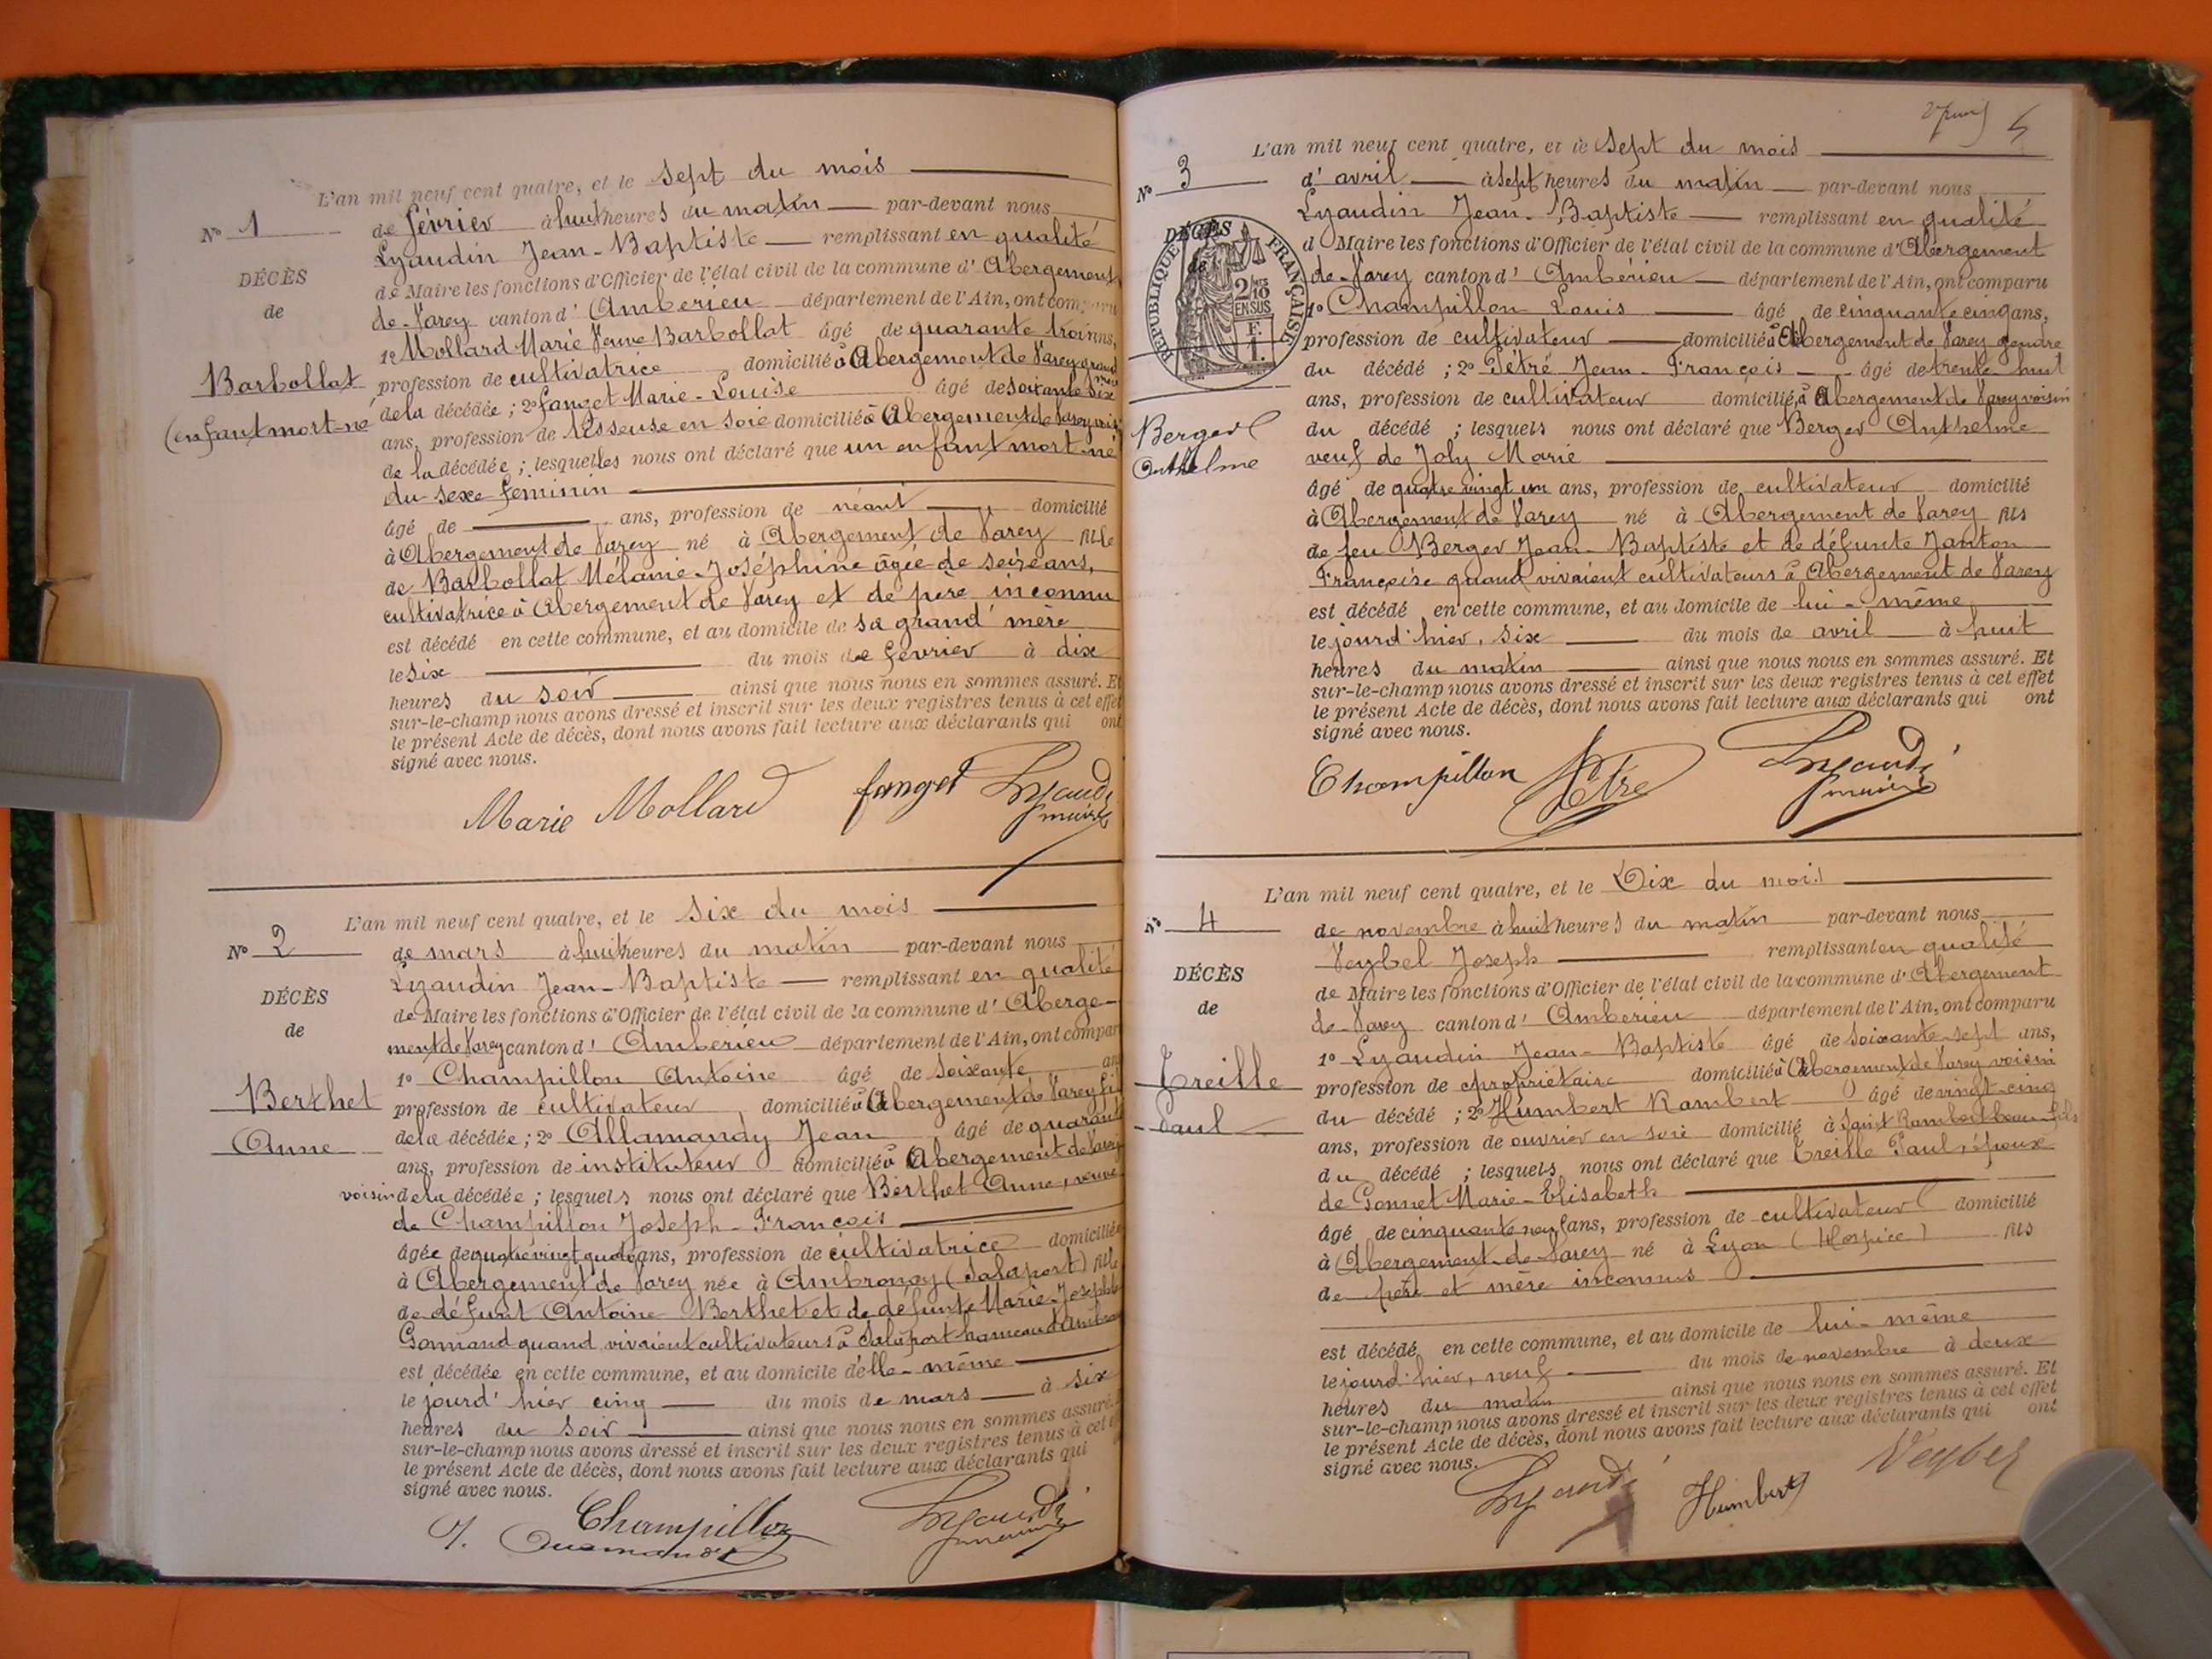 L'an mil neuf cent quatre, et le Sept du mois
N° 1
de février à huit heures du matin par-devant nous
Lyaudin Jean-Baptiste remplissant en qualité
de Maire les fonctions d'Officier de l'état civil de la commune d'Abergement
de-Varey canton d'Ambérieu département de l'Ain, ont comparu
1° Mollard Marie Veuve Barbollat âgé de quarante trois ans,
DÉCÈS
de
Barbollat
(enfant mort-né
profession de cultivatrice domicilié à Abergement de Varey grand mère
de la décédée ; 2° Fanget Marie-Louise âgé de soixante six
ans, profession de tisseuse en soie domicilié à Abergement de Varey
de la décédée ; lesquelles nous ont déclaré que un enfant mort-né
du sexe féminin
âgé de ans, profession de néant domicilié
à Abergement de Varey né à Abergement de Varey fille
de Barbollat Mélanie-Joséphine âgée de seize ans,
cultivatrice à Abergement de Varey et de père inconnu
est décédé en cette commune, et au domicile de sa grand'mère
le six du mois de février à dix
heures du soir ainsi que nous nous en sommes assuré. Et
sur-le-champ nous avons dressé et inscrit sur les deux registres tenus à cet effet
le présent Acte de décès, dont nous avons fait lecture aux déclarants qui ont
signé avec nous.
Marie Mollard fanget Lyaudin maire
L'an mil neuf cent quatre, et le six du mois
N° 2
de mars à huit heures du matin par-devant nous
Lyaudin Jean-Baptiste remplissant en qualité
DÉCÈS
de
Berthet
Anne
de Maire les fonctions d'Officier de l'état civil de la commune d'Aberge-
ment de Varey canton d'Ambérieu département de l'Ain, ont compar
1° Champillon Antoine âgé de soixante ans
profession de cultivateur domicilié à Abergement de Varey fils
de la décédée ; 2° Allamandy Jean âgé de quarante
ans, profession de instituteur domicilié à Abergement de Varey
voisin de la décédée ; lesquels nous ont déclaré que Berthet Anne, veuve
de Champillon Joseph-François
âgée de quatre vingt quatre ans, profession de cultivatrice domiciliée
à Abergement de Varey née à Ambronay (Salaport) fille
de défunt Antoine Berthet et de défunte Marie-Josephte
quand vivaient cultivateurs à Salaport hameau d'Ambronay
est décédée en cette commune, et au domicile d'elle-même
le jourd'hier cinq du mois de mars à six
heures du soir ainsi que nous nous en sommes assuré.
sur-le-champ nous avons dressé et inscrit sur les deux registres tenus à cet
le présent Acte de décès, dont nous avons fait lecture aux déclarants qui
signé avec nous.
Champillon Lyaudin maire
5
L'an mil neuf cent quatre, et le Sept du mois
N° 3
d'avril à sept heures du matin par-devant nous
Lyaudin Jean-Baptiste remplissant en qualité
DÉCÈS
de
RÉPUBLIQUE FRANÇAISE
2/10 EN SUS
Berger
Anthelme
d Maire les fonctions d'Officier de l'état civil de la commune d'Abergement
de-Varey canton d'Ambérieu département de l'Ain, ont comparu
1° Champillon Louis âgé de cinquante cinq ans,
profession de cultivateur domicilié à Abergement de Varey gendre
du décédé ; 2° Pétré Jean-François âgé de trente-huit
ans, profession de cultivateur domicilié à Abergement de Varey voisin
du décédé ; lesquels nous ont déclaré que Berger Anthelme
veuf de Joly Marie
âgé de quatre vingt un ans, profession de cultivateur domicilié
à Abergement de Varey né à Abergement de Varey fils
de feu Berger Jean-Baptiste et de défunte Janton
Françoise quand vivaient cultivateurs à Abergement de Varey
est décédé en cette commune, et au domicile de lui-même
le jourd'hier, six du mois de avril à huit
heures du matin ainsi que nous nous en sommes assuré. Et
sur-le-champ nous avons dressé et inscrit sur les deux registres tenus à cet effet
le présent Acte de décès, dont nous avons fait lecture aux déclarants qui ont
signé avec nous.
Champillon Pétré Lyaudin maire
L'an mil neuf cent quatre, et le Dix du mois
N° 4
de novembre à huit heures du matin par-devant nous
Veybel Joseph remplissant en qualité
DÉCÈS
de
Treille
Paul
de Maire les fonctions d'Officier de l'état civil de la commune d'Abergement
de-Varey canton d'Ambérieu département de l'Ain, ont comparu
1° Lyaudin Jean-Baptiste âgé de soixante-sept ans,
profession de propriétaire domicilié à Abergement de Varey voisin
du décédé ; 2° Humbert Rambert âgé de vingt-cinq
ans, profession de ouvrier en soie domicilié à Saint Rambert beau-fils
du décédé ; lesquels nous ont déclaré que Treille Paul, époux
de Gonnet Marie-Elisabeth
âgé de cinquante neuf ans, profession de cultivateur domicilié
à Abergement-de-Varey né à Lyon (Hospice) fils
de père et mère inconnus
est décédé en cette commune, et au domicile de lui-même
le jourd'hier, neuf du mois de novembre à deux
heures du matin ainsi que nous nous en sommes assuré. Et
sur-le-champ nous avons dressé et inscrit sur les deux registres tenus à cet effet
le présent Acte de décès, dont nous avons fait lecture aux déclarants qui ont
signé avec nous.
Lyaudin Humbert Veybel